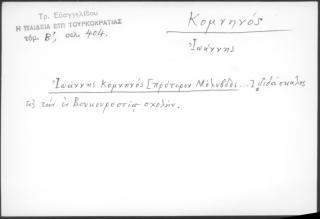 Τρ. Εὐαγγελίδου
Η ΠΑΙΔΕΙΑ ΕΠΙ ΤΟΥΡΚΟΚΡΑΤΙΑΣ
τόμ. Β', σελ. 404.
Κομνηνός
Ἰωάννης
Ἰωάννης Κομνηνός [πρότερον Μόλυβδος...] διδάσκαλος
τῶν ἐν Βουκουρεστίῳ σχολῶν.